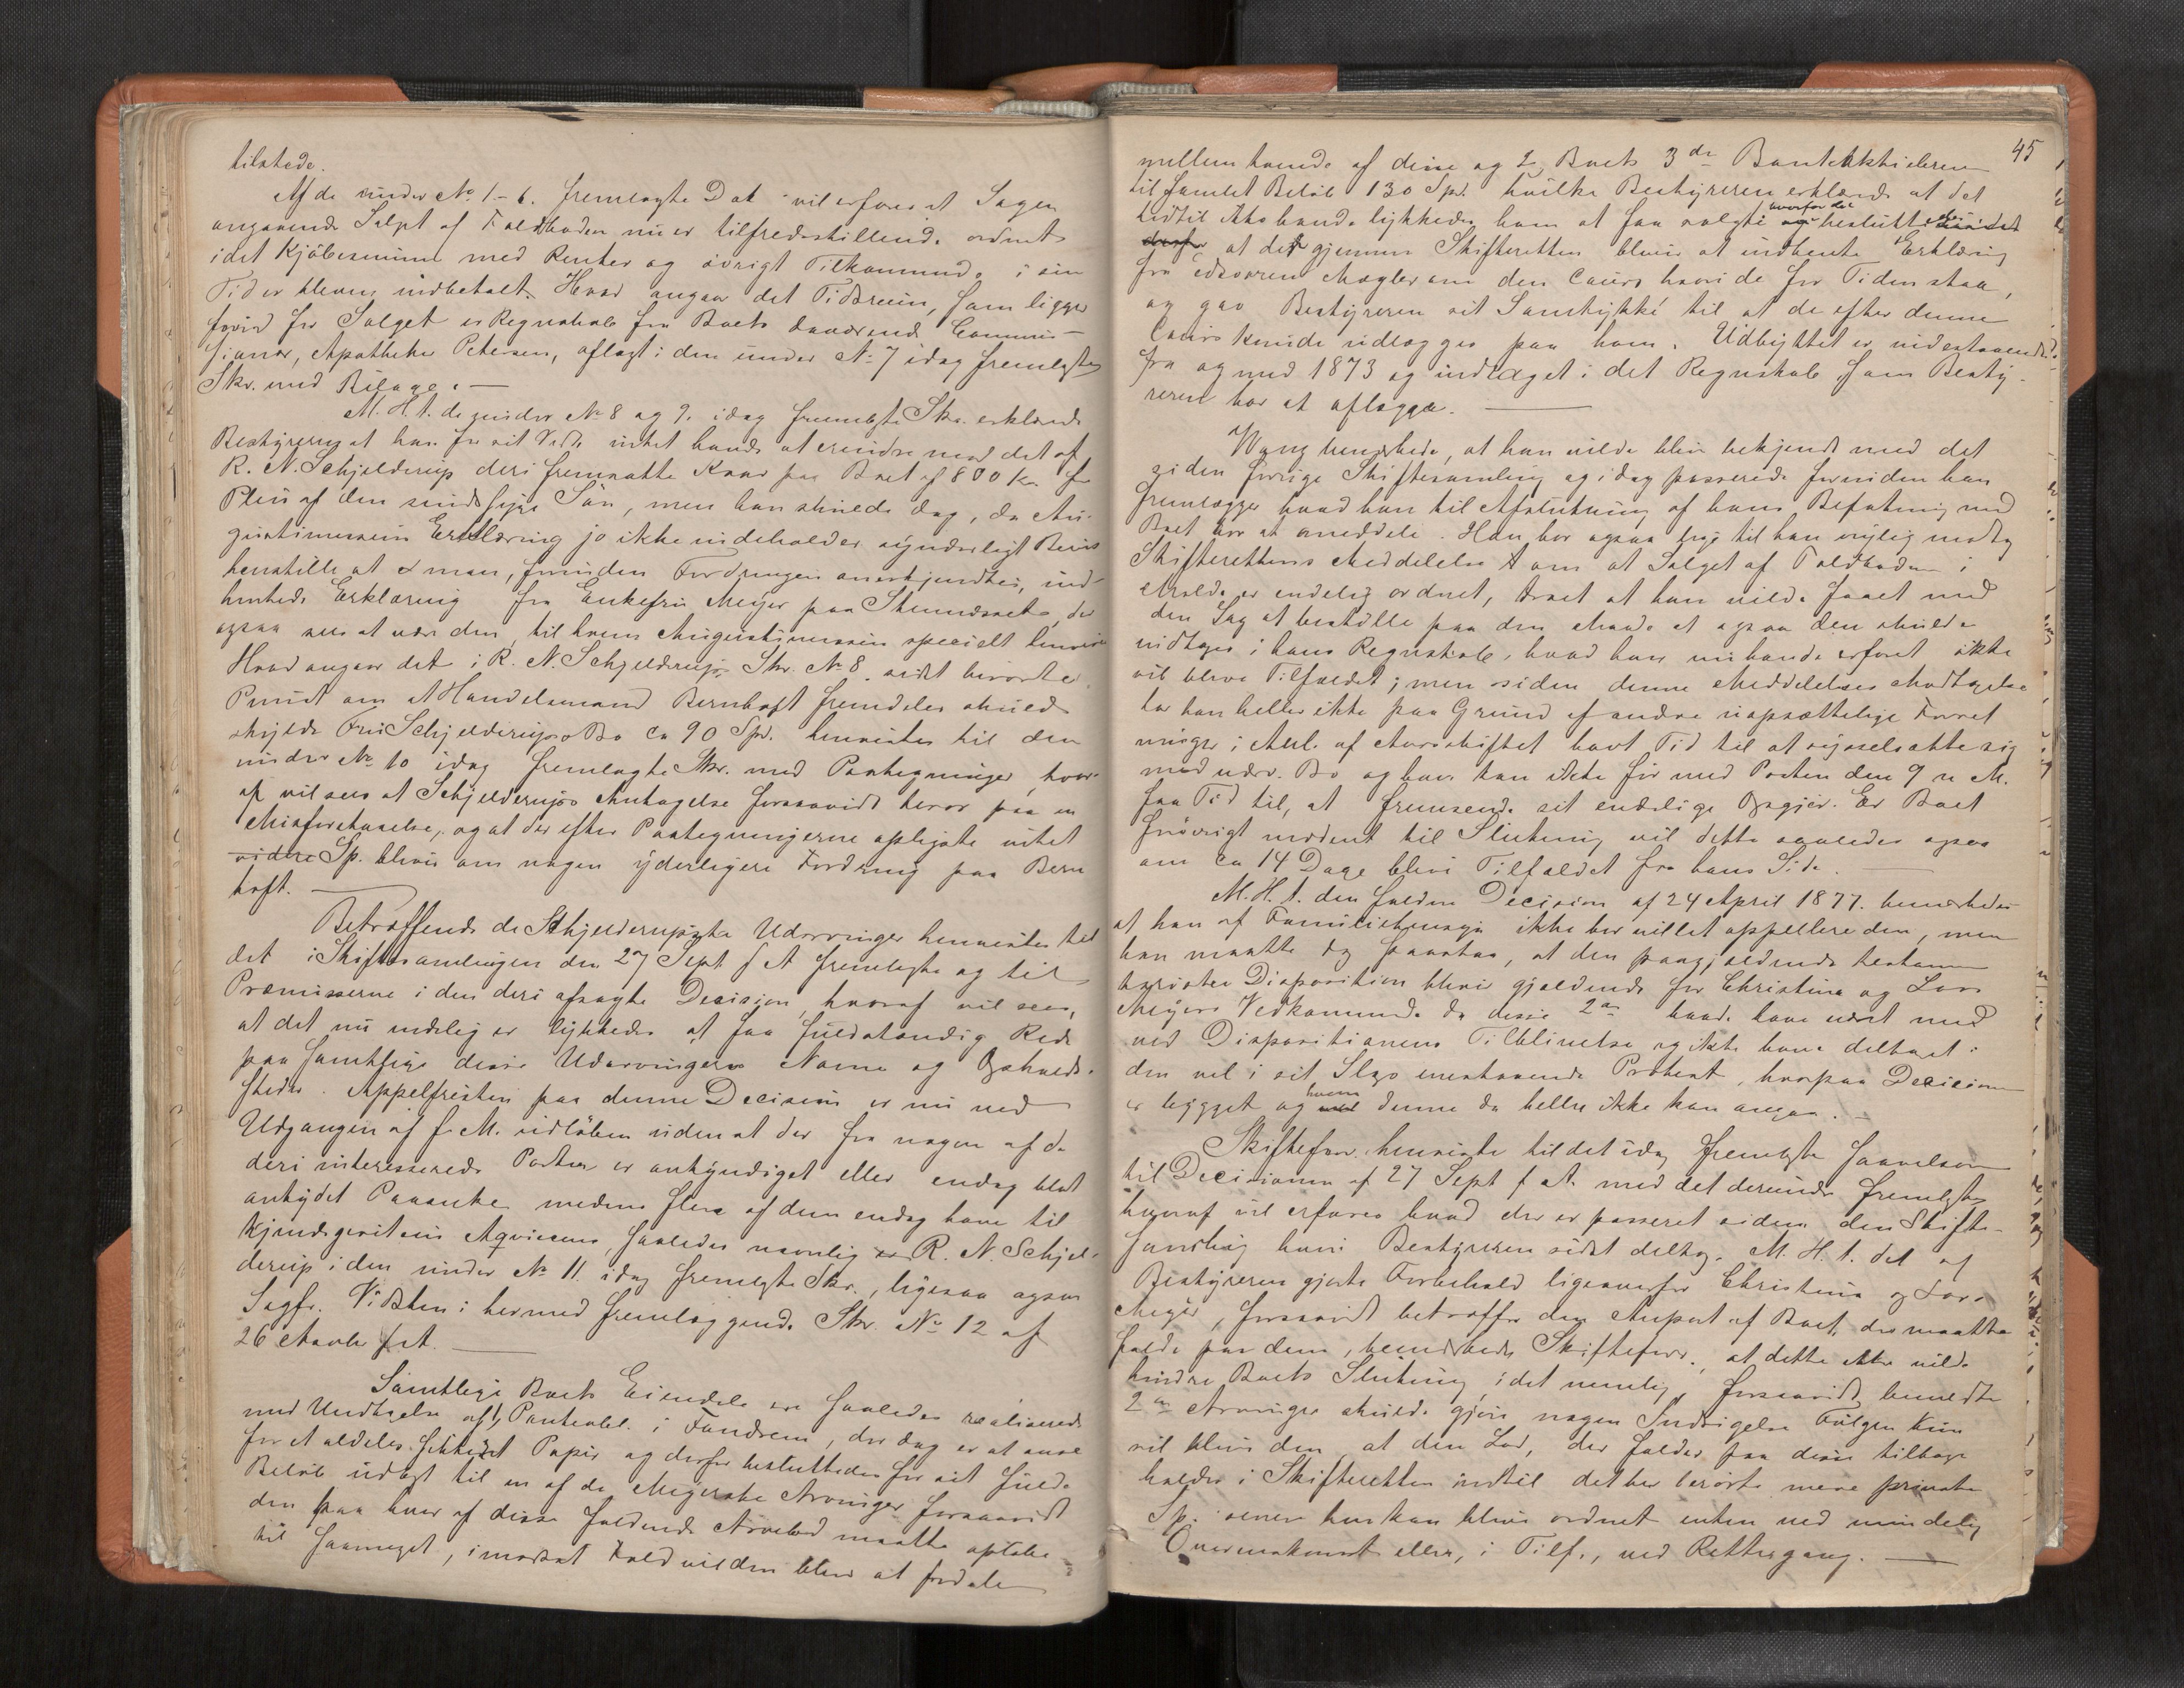 tilstede.
Af de under No 1-6. fremlagte Dok. vil erfares at Sagen
angaaende Salget af Toldboden nu er tilfredsstillende ordnet
idet Kjöbesummen med Renter og övrigt Tilkommende i sin
Tid er bleven indbetalt. Hvad angaar det Tidsrum, som ligger
forud for Salget er Regnskab fra Boets daværende Commis-
sionær, Apotheker Petersen, aflagt i den under No 7 idag fremlagte
Skr. med Bilage. —
M. H. t. de under No 8 og 9. idag fremlagte Skr. erklærede
Bestyreren at han for sit Vedk. intet havde at erindre mod det af
R. N. Schjelderup deri fremsatte Krav paa Boet af 800 Kr. for
Pleie af den sindssyge Sön, men han skulde dog, da Au-
gustinussens Erklæring jo ikke indeholder synderligt Bevis
henstille at man, forinden Fordringen anerkjendtes, ind-
hentede Erklæring fra Enkefru Meyer paa Stennæsset, der
ogsaa sees at være den, til hvem Augustinussen specielt henviser
Hvad angaar det i R. N. Schjelderups Skr. No 8. sidst berörte
Punct om at Handelsmand Bernhoft fremdeles skulde
skylde Fru Schjelderups Bo ca 90 Spd. henvistes til den
under No 10 idag fremlagte Skr. med Paategninger, hvor-
af vil sees at Schjelderups Antagelse forsaavidt beror paa en
Misforstaaelse, og at der efter Paategningerne oplyste intet
videre Sp. bliver om nogen yderligere Fordring paa Bern
hoft. —
Betræffende de Schjelderupske Udarvinger henvistes til
det i Skiftesamlingen den 27 Sept f A fremlagte og til
Præmisserne i den deri afsagte Decision, hvoraf vil sees,
at det nu endelig er lykkedes at faa fuldstændig Rede
paa samtlige disse Udarvingers Navne og Opholds-
steder. Appelfristen paa denne Decision er nu ved
Udgangen af f. M. udlöben uden at der fra nogen af de
deri interesserede Parter er ankyndiget eller endog blot
antydet Paaanke medens flere af dem endog have til
Kjendegivet sin Aqviescens, saaledes navnlig R. N. Schjel-
derup i den under No 11. idag fremlagte Skr., ligesaa ogsaa
Sagf. Vibsten i hermed fremlæggende Skr. No 12 af
26 Novbr f. A. —
Samtlige Boets Eiendele ere saaledes realiserede
med Undtagelse af 1 Panteobl. i Fundsem, der dog er at anse
for et aldeles sikkert Papir og derfor besluttedes for sit fulde
Belöb udlagt til en af de Meyerske Arvinger forsaavidt
den paa hver af disse faldende Arvelod maatte opløbe
til saameget, i modsat Fald vil den blive at fordele
45
mellem tvende af disse og 2 Boets 3 de Bankaktier
til samlet Belöb 130 Spd. hvilke Bestyreren erklærede at det
hidtil ikke havde lykkedes ham at faa solgte hvorfor det besluttedes
at der gjennem Skifteretten bliver at indhente Erklæring
fra edsvoren Mægler om den Cours hvori de for Tiden staa,
og gav Bestyreren sit Samtykke til at de efter denne
Cours kunde udlægges paa ham. Udbyttet er indestaaende
fra og med 1873 og indtaget i det Regnskab som Besty-
reren har at aflægge. —
Wang bemærkede, at han vilde blive bekjendt med det
i den forrige Skiftesamling og idag passerede forinden han
fremlægger hvad han til Afslutning af hans Befatning med
Boet har at meddele. Han har ogsaa lige til han nylig modtog
Skifterettens Meddelelse om at Salget af Toldboden i
Molde er endelig ordnet, troet at han vilde faaet med
den Sag at bestille paa den Maade at ogsaa den skulde
indtages i hans Regnskab, hvad han nu havde erfaret ikke
vil blive Tilfældet; men siden denne Meddelelses Modtagelse
har han heller ikke paa Grund af andre uopsættelige Forret
ninger i Anl. af Aarsskiftet havt Tid til at sysselsætte sig
med nærv. Bo og han kan ikke för med Posten den 9 n. M.
faa Tid til, at fremsende sit endelige Opgjör. Er Boet
forövrigt modent til Slutning vil dette saaledes ogsaa
om ca 14 Dage blive Tilfældet fra hans Side. —
M. H. t. den faldne Decision af 24 April 1877. bemærkedes
at han af Familiehensyn ikke har villet appellere den, men
han maatte dog paastaa, at den paagjældende testamen
tariske Disposition bliver gjældende for Christine og Lars
Meyers Vedkommende da disse 2de havde have været med
ved Dispositionens Tilblivelse og ikke have deltaget i
den vel i sit Slags enestaaende Protest, hvorpaa Decisionen
er bygget og hvem denne da heller ikke kan angaa. —
Skifteforv. henviste til det idag fremlagte saavelsom
til Decisionen af 27 Sept f A. med det derunder fremlagte
hvoraf vil erfares hvad der er passeret siden den Skifte-
samling hvori Bestyreren sidst deltog. M. H. t. det af
Bestyreren gjorte Forbehold ligeoverfor Christine og Lars
Meyer, forsaavidt betræffer den Anpart af Boet, der maatte
falde paa dem, bemærkede Skifteforv., at dette ikke vilde
hindre Boets Slutning, idet nemlig, forsaavidt bemeldte
2de Arvinger skulde gjöre nogen Indsigelse Fölgen kun
vil blive den, at den Lod, der falder paa disse tilbage
holdes i Skifteretten indtil det her berörte mere private
Sp. senere hen kan blive ordnet enten ved mindelig
Overenskomst eller, i Tilf., ved Rettergang. —